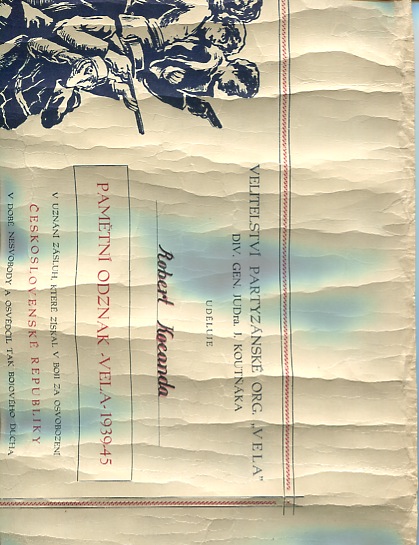 VELITELSTVÍ PARTYZÁNSKÉ ORG. „VELA"
DIV. GEN. JUDra. J. KOUTŇÁKA
UDĚLUJE
Robert Kocanda
PAMĚTNÍ ODZNAK -VELA- 1939-45
V UZNÁNÍ ZÁSLUH, KTERÉ ZÍSKAL V BOJI ZA OSVOBOZENÍ
ČESKOSLOVENSKÉ REPUBLIKY
V DOBĚ NESVOBODY A OSVĚDČIL TAK BOJOVÉHO DUCHA